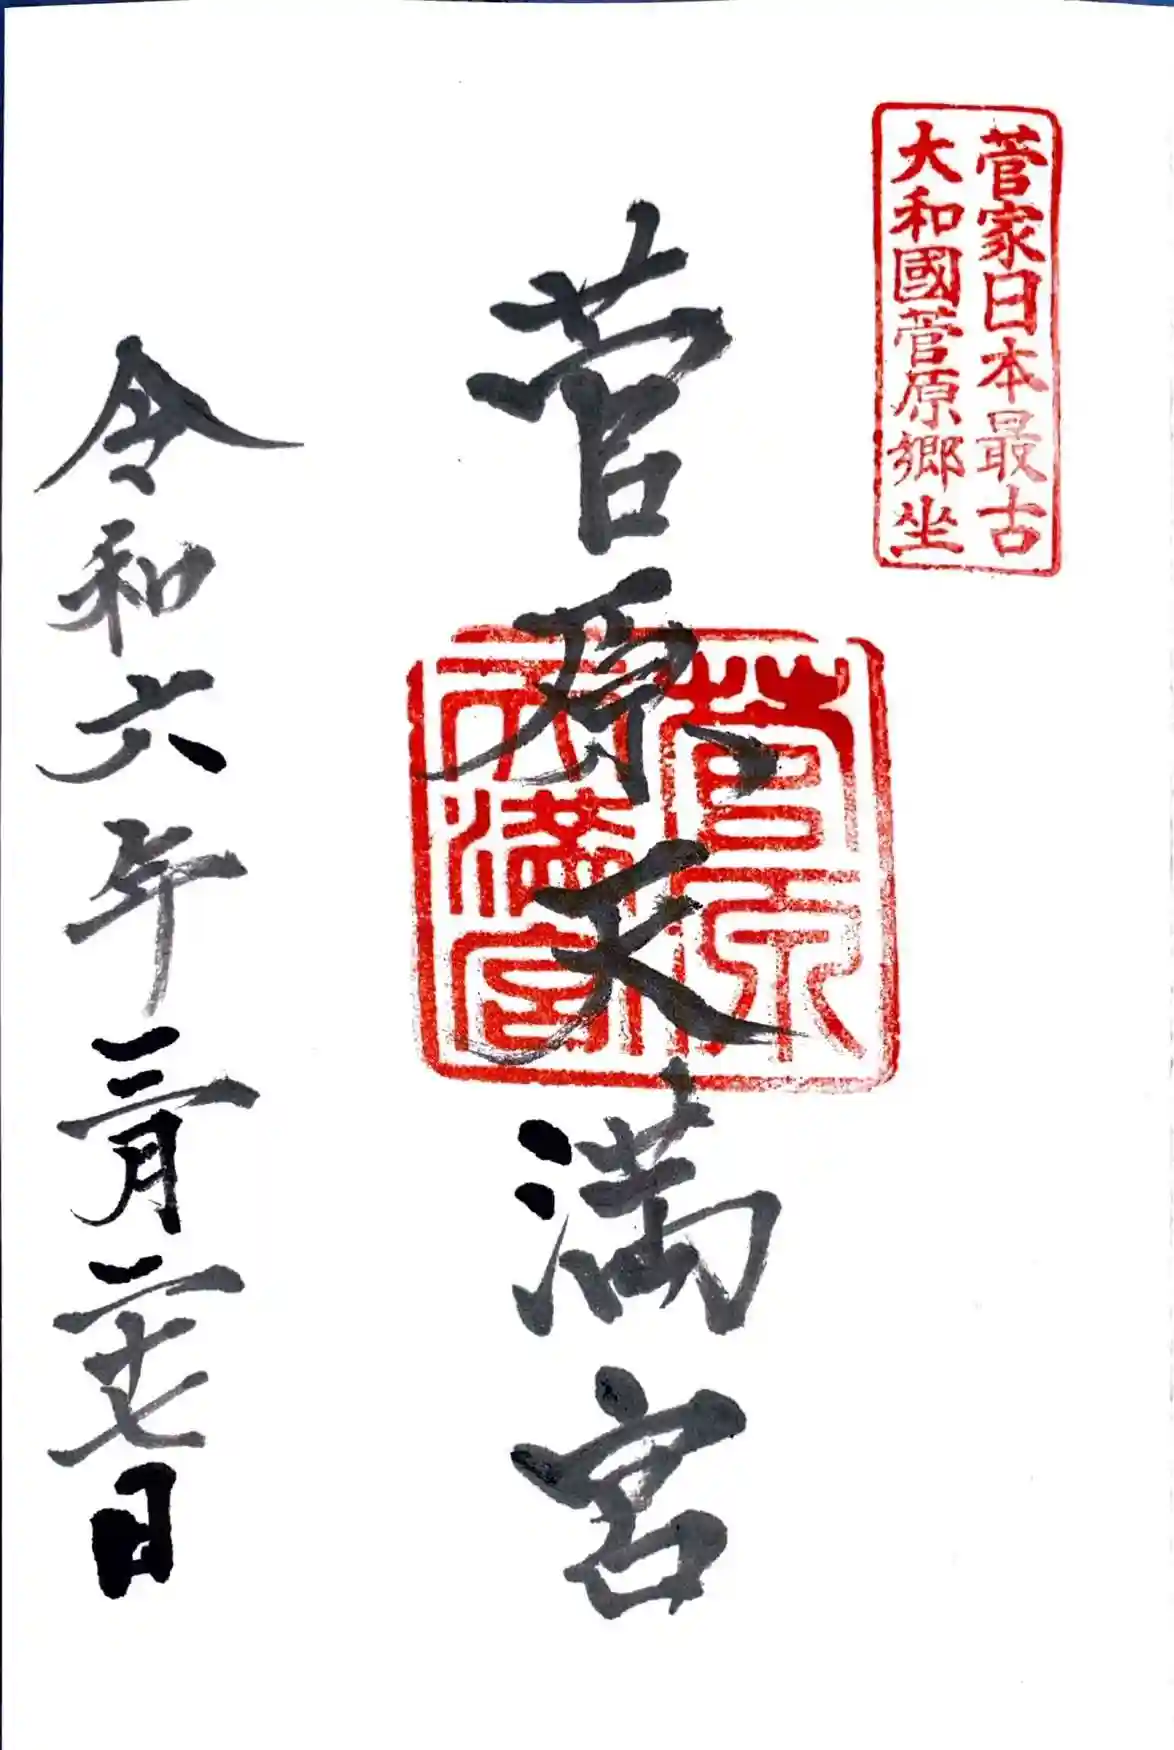 菅家日本最古
大和國菅原郷坐
菅原天満宮
菅原
天満宮
令和六年三月二十七日